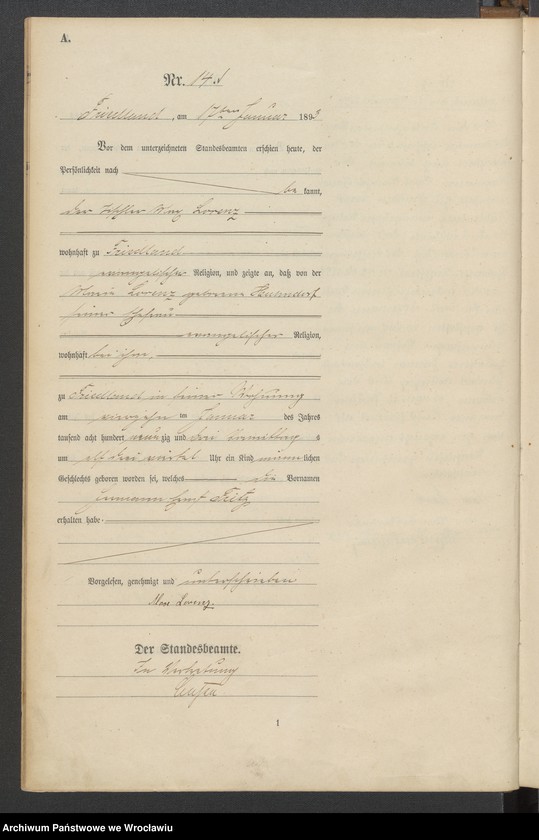 A.
Nr. 14.
Friedland, am 17ten Januar 1893
Vor dem unterzeichneten Standesbeamten erschien heute, der
Persönlichkeit nach
be kannt,
der Tischler Max Lorenz
wohnhaft zu Friedland
evangelischer Religion, und zeigte an, daß von der
Maria Lorenz geborene
seiner Ehefrau
evangelischer Religion,
wohnhaft bei ihm,
zu Friedland in seiner Wohnung
am vierzehn ten Januar des Jahres
tausend acht hundert neun zig und drei Vormittag s
um elf drei viertel Uhr ein Kind männ lichen
Geschlechts geboren worden sei, welches die Vornamen
Hermann Ernst Fritz
erhalten habe.
Vorgelesen, genehmigt und unterschrieben
Max Lorenz.
Der Standesbeamte.
In Vertretung
1
Archiwum Państwowe we Wrocławiu